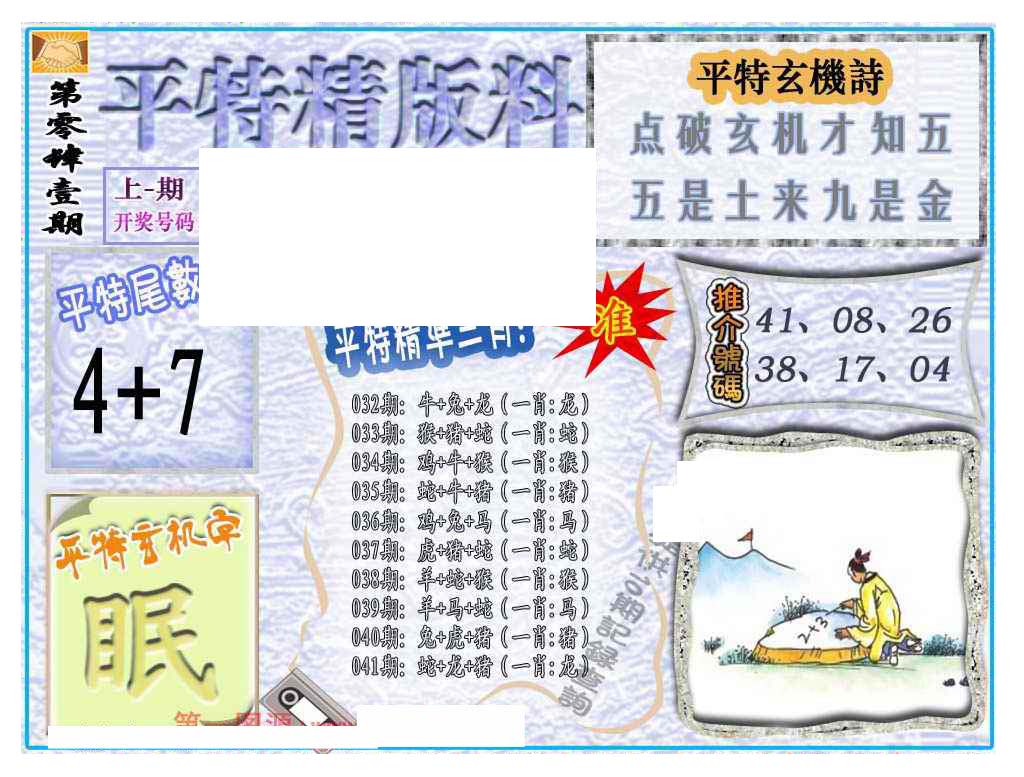 第零肆壹期
平特精版料
上-期
开奖号码
平特玄機詩
点破玄机才知五
五是土来九是金
平特尾數
4+7
平特精準三肖:
准
032期: 牛+兔+龙（一肖:龙）
033期: 猴+猪+蛇（一肖:蛇）
034期: 鸡+牛+猴（一肖:猴）
035期: 蛇+牛+猪（一肖:猪）
036期: 鸡+兔+马（一肖:马）
037期: 虎+猪+蛇（一肖:蛇）
038期: 羊+蛇+猴（一肖:猴）
039期: 羊+马+蛇（一肖:马）
040期: 兔+虎+猪（一肖:猪）
041期: 蛇+龙+猪（一肖:龙）
期記録查詢
推介號碼
41、08、26
38、17、04
平特玄机字
眠
2+3